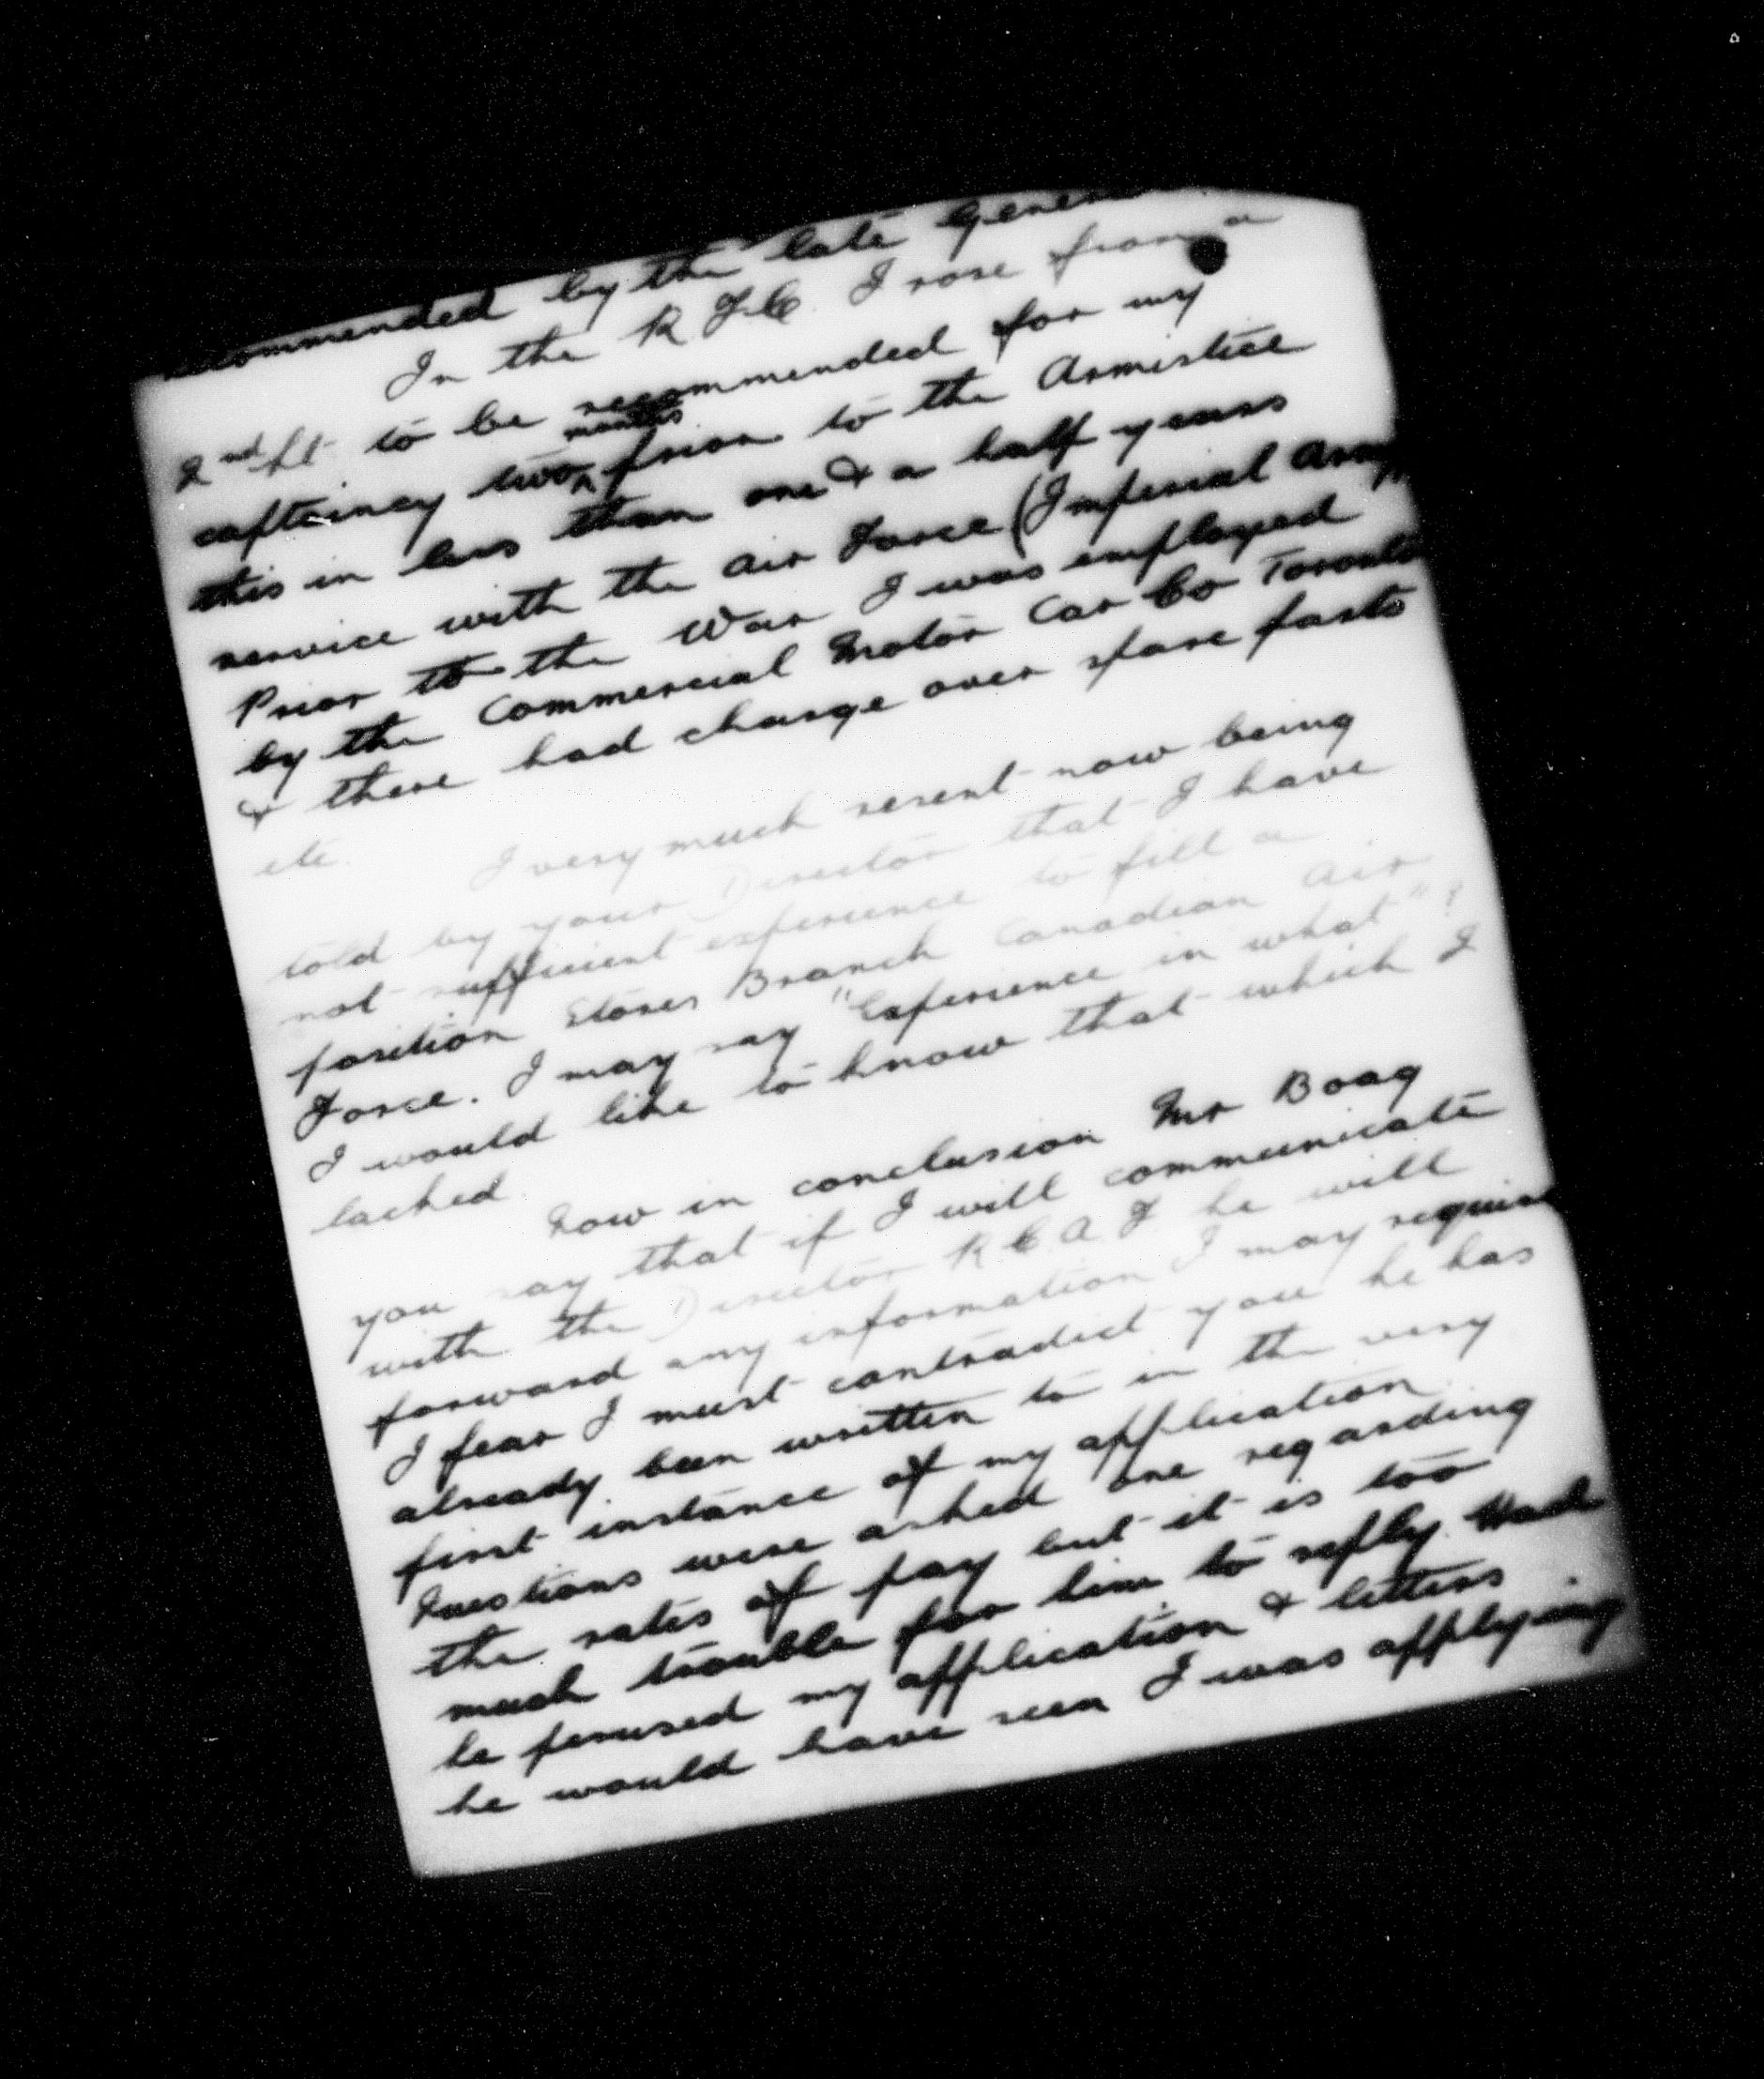 recommended by the late General
In the R F.C. I rose from a
2nd Lt to be recommended for my
captaincy two months prior to the Armistice
this in less than one & a half years
service with the Air Force (Imperial Army)
Prior to the War I was employed
by the Commercial Motor Car Co Toronto
& there had charge over spare parts
etc. I very much resent now being
told by your Director that I have
not sufficient experience to fill a
position Stores Branch Canadian Air
Force. I may say "Experience in what"?
I would like to know that which I
lacked
Now in conclusion Mr Boag
you say that if I will communicate
with the Director R C A F he will
forward any information I may require
I fear I must contradict you he has
already been written to in the very
first instance of my application
Questions were asked one regarding
the rates of pay but it is too
much trouble for him to reply. Had
he perused my application & letters
he would have seen I was applying